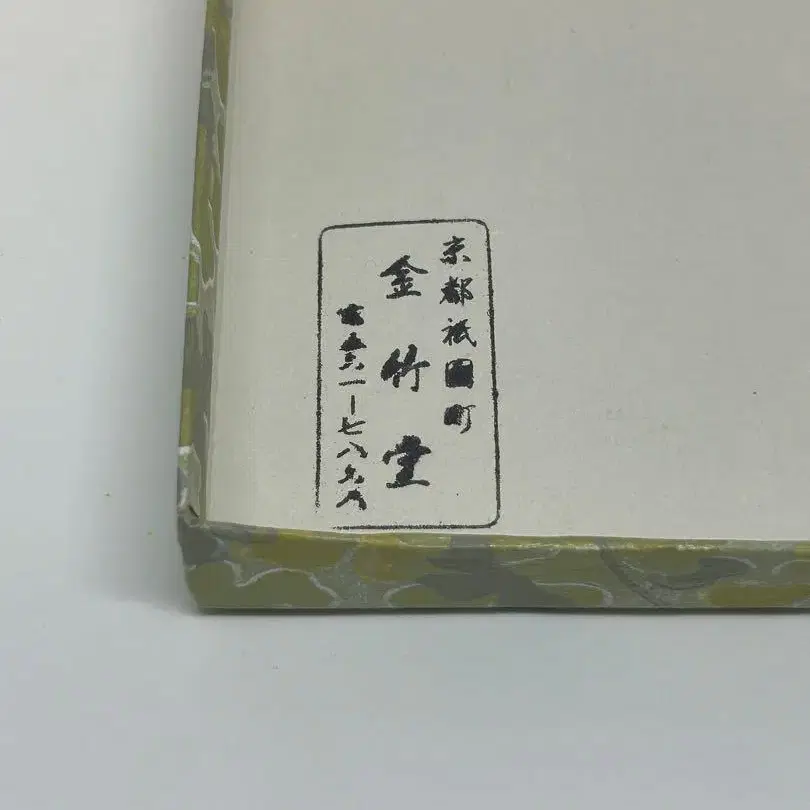 京都祇園町
金竹堂
電五六一ー七八六八